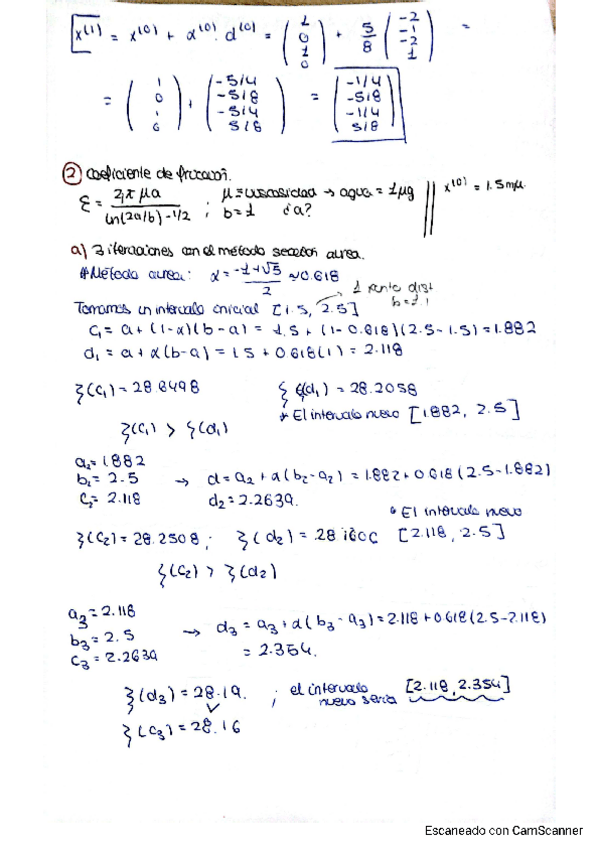 x⁽¹⁾ = x⁽⁰⁾ + α⁽⁰⁾ · d⁽⁰⁾ = (1 0 1 0) + 5/8 (-2 -1 -2 1) =
= (1 0 1 0) + (-5/4 -5/8 -5/4 5/8) = (-1/4 -5/8 -1/4 5/8)
② Coeficiente de fricción.
ξ = 4π μa / (ln(2a/b) - 1/2) ; μ = viscosidad → agua = 1 μg || x⁽⁰⁾ = 1.5 mμ.
b = 1 ¿a?
a) 3 iteraciones con el método sección aurea.
# Método aurea: α = (-1+√5)/2 ≈ 0.618
Tomamos un intervalo inicial [1.5, 2.5] → 1 dist
b = 1.1
C₁ = a + (1-α)(b-a) = 1.5 + (1-0.618)(2.5-1.5) = 1.882
d₁ = a + α(b-a) = 1.5 + 0.618(1) = 2.118
ξ(C₁) = 28.8498 ξ(d₁) = 28.2058
* El intervalo nuevo [1.882, 2.5]
ξ(C₁) > ξ(d₁)
a₂ = 1.882
b₂ = 2.5 → d = a₂ + α(b₂-a₂) = 1.882 + 0.618(2.5-1.882)
C₂ = 2.118 d₂ = 2.2639.
* El intervalo nuevo
ξ(C₂) = 28.2508 ; ξ(d₂) = 28.1606 [2.118, 2.5]
ξ(C₂) > ξ(d₂)
a₃ = 2.118
b₃ = 2.5 → d₃ = a₃ + α(b₃-a₃) = 2.118 + 0.618(2.5-2.118)
C₃ = 2.2639 = 2.354.
ξ(d₃) = 28.19. ; el intervalo [2.118, 2.354]
nuevo seria
ξ(C₃) = 28.16
Escaneado con CamScanner